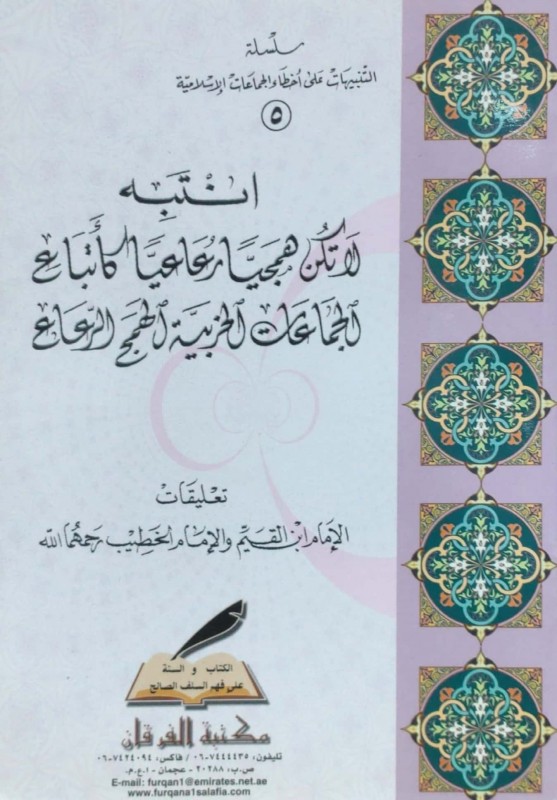 سلسلة
التنبيهات على أخطاء الجماعات الإسلامية
٥
انتبه
لا تكن همجيًا رعاعيًا كأتباع
الجماعات الحزبية الهمج الرعاع
تعليقات
الإمام ابن القيم والإمام الخطيب رحمهما الله
الكتاب والسنة
على فهم السلف الصالح
مكتبة الفرقان
تليفون: ٧٤٤٤٤٣٥-٠٦ / فاكس: ٧٤٢٤٠٩٤-٠٦
ص.ب: ٢٠٢٨٨ - عجمان - ا.ع.م.
E-mail: furqan1@emirates.net.ae
www.furqana1salafia.com